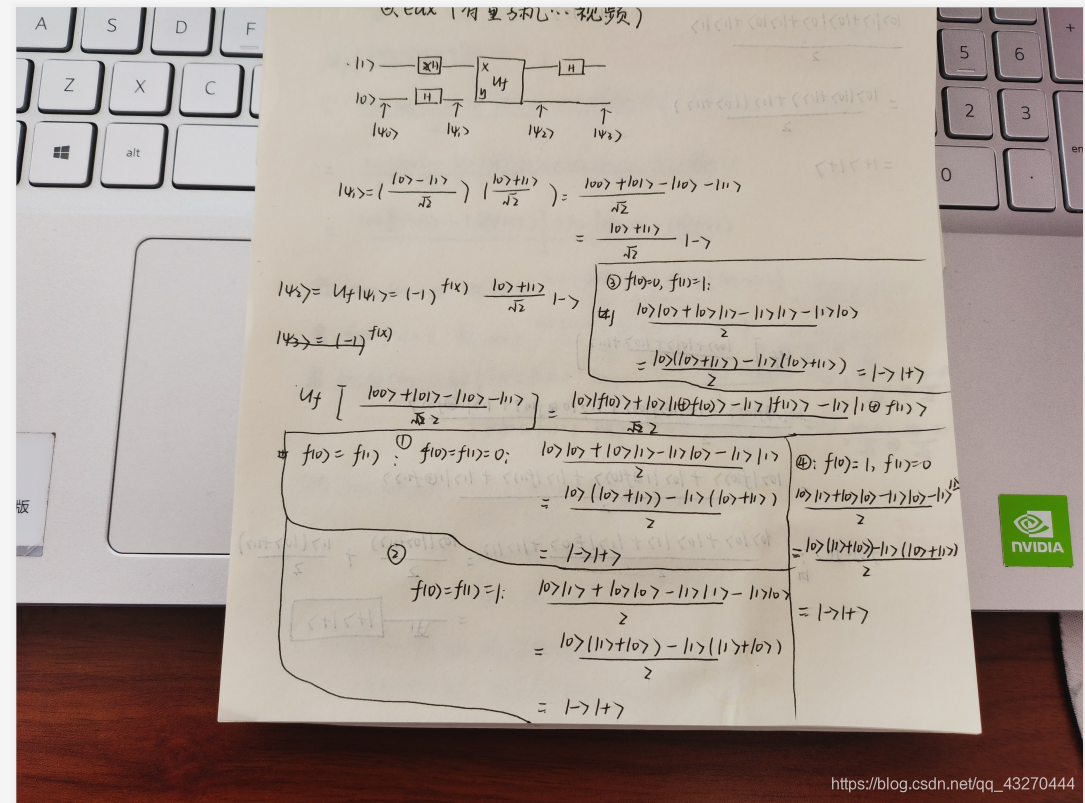 A S D F
Z X C
alt
5 6 +
2 3
0 . en
版
NVIDIA
以edx(有量子机…视频)
|1> H x Uf H
|0> H y
|ψ0> |ψ1> |ψ2> |ψ3>
|ψ1> = ( |0>-|1> / √2 ) ( |0>+|1> / √2 ) = |00>+|01>-|10>-|11> / √2
= |0>+|1> / √2 |->
|ψ2> = Uf|ψ1> = (-1)^f(x) |0>+|1> / √2 |->
|ψ3> = (-1)^f(x)
③ f(0)=0, f(1)=1:
|0>|0>+|0>|1>-|1>|1>-|1>|0> / 2
= |0>(|0>+|1>)-|1>(|0>+|1>) / 2 = |->|+>
Uf [ |00>+|01>-|10>-|11> / 2 ] = |0>|f(0)>+|0>|1⊕f(0)>-|1>|f(1)>-|1>|1⊕f(1)> / 2
f(0)=f(1): ① f(0)=f(1)=0: |0>|0>+|0>|1>-|1>|0>-|1>|1> / 2
= |0>(|0>+|1>)-|1>(|0>+|1>) / 2
= |->|+>
② f(0)=f(1)=1: |0>|1>+|0>|0>-|1>|1>-|1>|0> / 2
= |0>(|1>+|0>)-|1>(|1>+|0>) / 2
= |->|+>
④: f(0)=1, f(1)=0
|0>|1>+|0>|0>-|1>|0>-|1>|1> / 2
= |0>(|1>+|0>)-|1>(|0>+|1>) / 2
= |->|+>
https://blog.csdn.net/qq_43270444